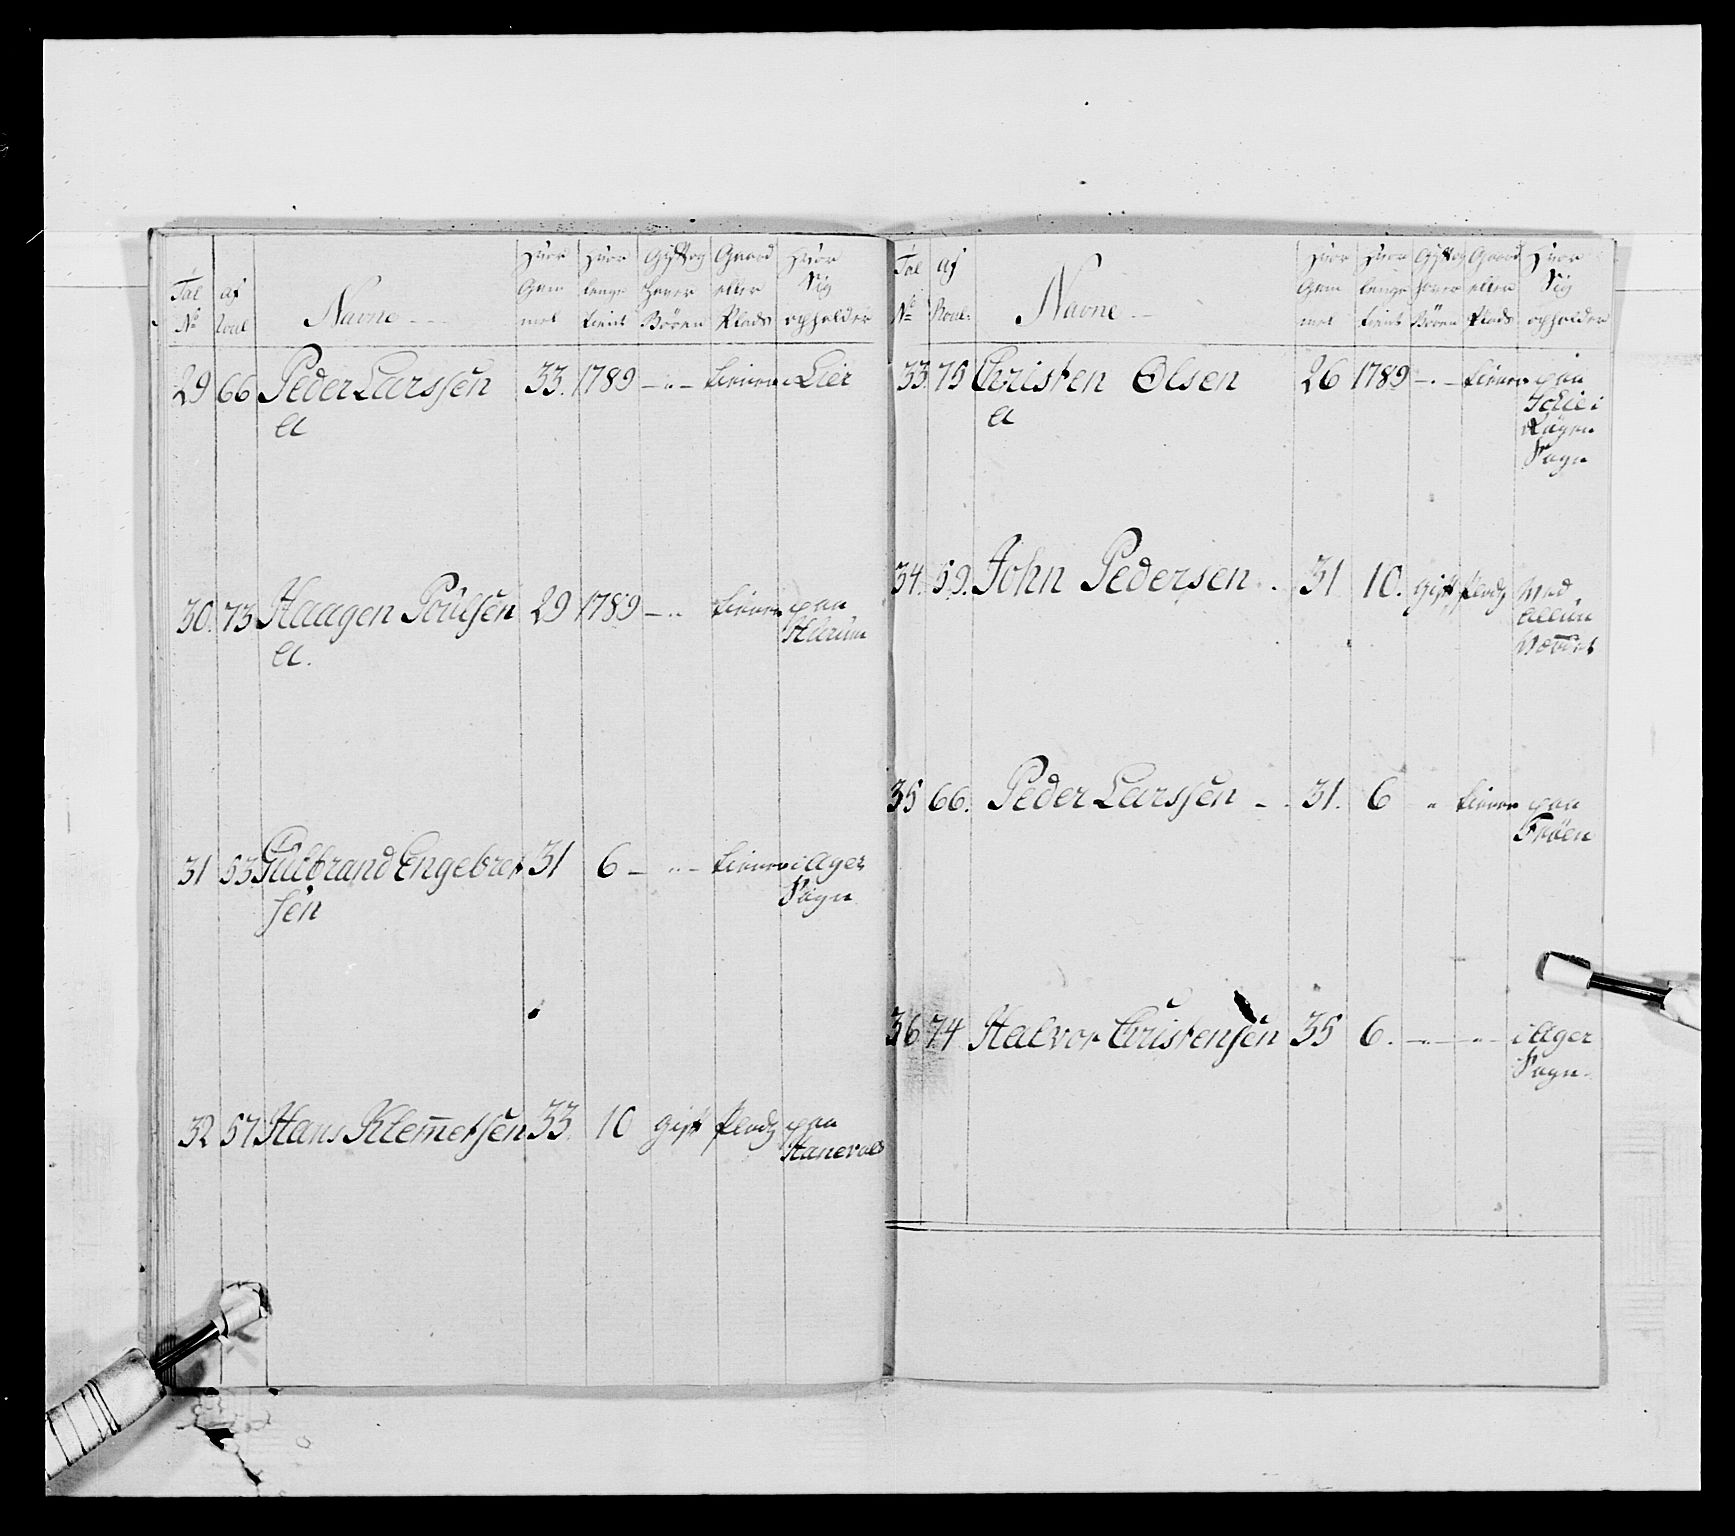 Tal No | af Roul | Navne | Hvor Gam mel | Hvor lenge tient | Gyft og haver Börn | Gaard eller Plads | Hvor Sig opholder
29 66 Peder Larssen 33. 1789 — " — tiener i Lier
a
30. 73 Haagen Poulsen 29 1789 — " tiener paa
Hurum
a.
31 53 Gulbrand Engebret 31 6 — " — tiener i Ager
sen Sogn
32 57 Hans Klem̅etsen 33. 10 gift Pladz paa
Haneval
Tal No | af Roul: | Navne | Hvor Gam mel | Hvor lenge tient | Gyft og haver Börn | Gaard eller Plads | Hvor Sig opholder
33. 75 Christen Olsen 26 1789 — " — tiener paa
a
i
Rögen
Sogn
34. 59. John Pedersen 31 10. gift Pladz Ved
Allun
35 66. Peder Larssen — 31. 6 " tiener paa
Fröen
36 74 Halvor Christensen 35 6. — " — " — i Ager
Sogn.